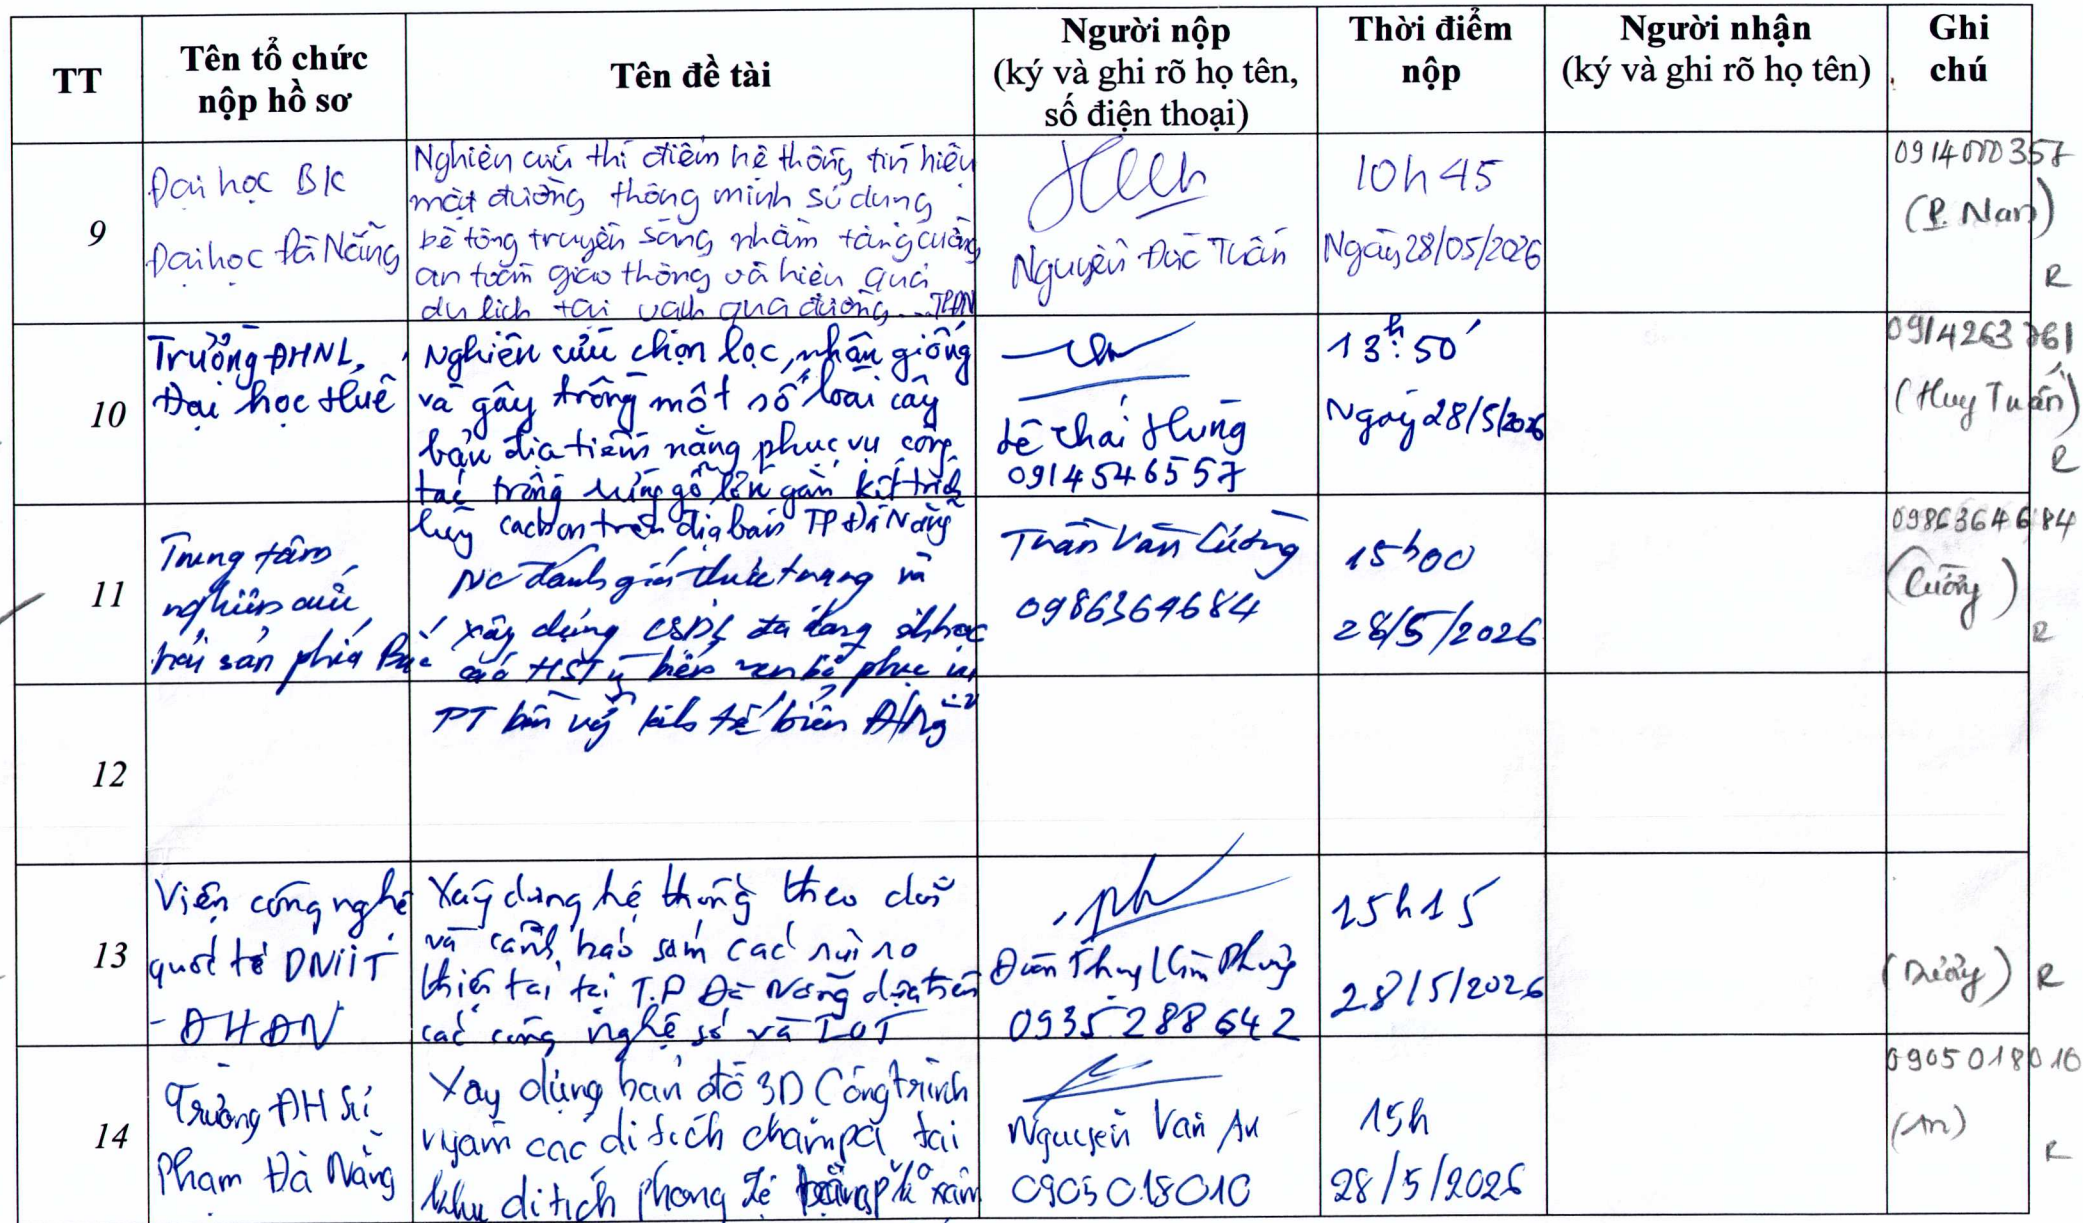 TT
Tên tổ chức
nộp hồ sơ
Tên đề tài
Người nộp
(ký và ghi rõ họ tên,
số điện thoại)
Thời điểm
nộp
Người nhận
(ký và ghi rõ họ tên)
Ghi
chú
9
Đại học BK
Đại học Đà Nẵng
Nghiên cứu thí điểm hệ thống tín hiệu
mặt đường thông minh sử dụng
bê tông truyền sáng nhằm tăng cường
an toàn giao thông và hiệu quả
du lịch tại vạch qua đường... TPĐN
Nguyễn Đức Tuấn
10h45
Ngày 28/05/2026
0914000357
(P. Nan)
R
10
Trường ĐHNL,
Đại học Huế
Nghiên cứu chọn lọc, nhân giống
và gây trồng một số loài cây
bản địa tiềm năng phục vụ công
tác trồng rừng gỗ lớn gắn kết trữ
lũy cacbon trên địa bàn TP Đà Nẵng
Lê Thái Hùng
0914546557
13h:50'
Ngày 28/5/2026
0914263761
(Huy Tuấn)
R
11
Trung tâm
nghiên cứu
hải sản phía Bắc
NC đánh giá thực trạng và
xây dựng CSDL đa dạng sinh học
các HST ven bờ phục vụ
PT bền vững kinh tế biển Đ/Nẵng
Trần Văn Cường
0986364684
15h00
28/5/2026
0986364684
(Cường)
R
12
13
Viện công nghệ
quốc tế DNIIT
- ĐHĐN
Xây dựng hệ thống theo dõi
và cảnh báo sớm các rủi ro
thiên tai tại T.P Đà Nẵng dựa trên
các công nghệ số và IOT
Đoàn Thụy Kim Phương
0935 288 642
15h15
28/5/2026
R
14
Trường ĐH Sư
Phạm Đà Nẵng
Xây dựng bản đồ 3D Công trình
ngầm các di tích chămpa tại
khu di tích phong Lệ
Nguyễn Văn An
0905 018 010
15h
28/5/2026
0905018010
(An)
R